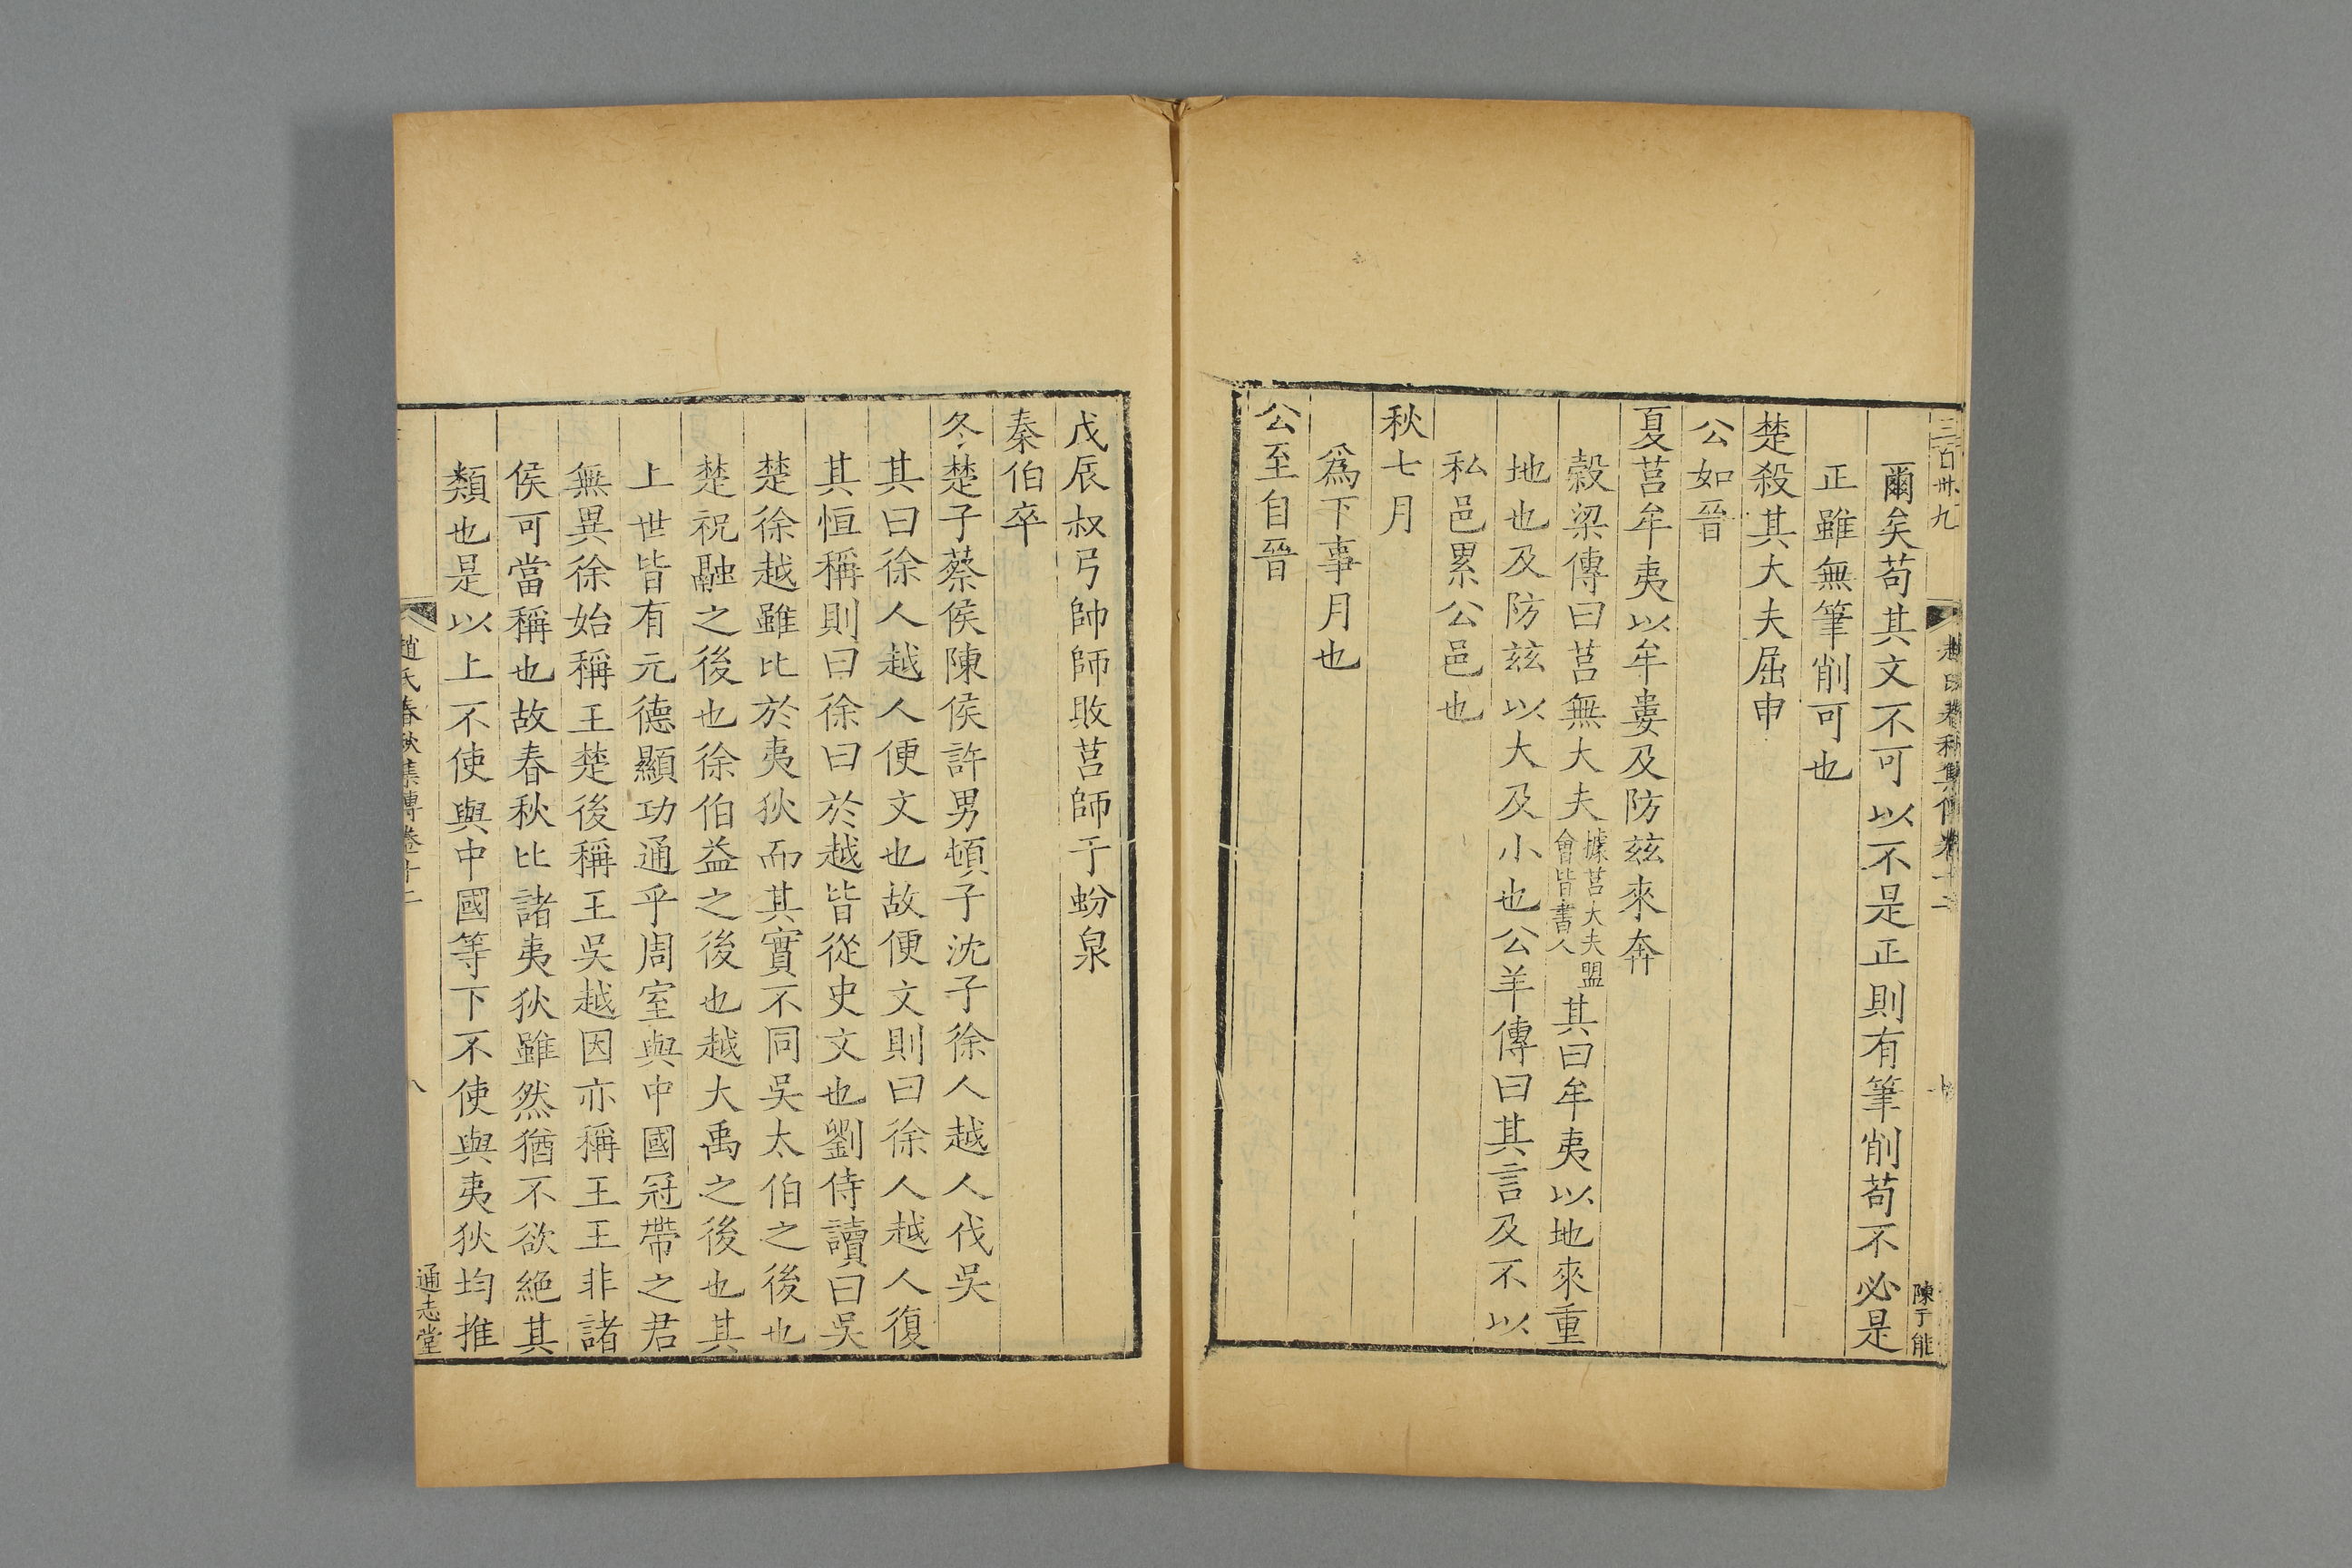 三百卅九
陳于能
爾矣苟其文不可以不是正則有筆削苟不必是
正雖無筆削可也
楚殺其大夫屈申
公如晉
夏莒牟夷以牟婁及防茲來奔
穀梁傳曰莒無大夫據莒大夫盟會皆書人其曰牟夷以地來重
地也及防茲以大及小也公羊傳曰其言及不以
私邑累公邑也
秋七月
爲下事月也
公至自晉
戊辰叔弓帥師敗莒師于蚡泉
秦伯卒
冬楚子蔡侯陳侯許男頓子沈子徐人越人伐吳
其曰徐人越人便文也故便文則曰徐人越人復
其恒稱則曰徐曰於越皆從史文也劉侍讀曰吳
楚徐越雖比於夷狄而其實不同吳太伯之後也
楚祝融之後也徐伯益之後也越大禹之後也其
上世皆有元德顯功通乎周室與中國冠帶之君
無異徐始稱王楚後稱王吳越因亦稱王王非諸
侯可當稱也故春秋比諸夷狄雖然猶不欲絕其
類也是以上不使與中國等下不使與夷狄均推
趙氏春秋集傳卷十二
八
通志堂